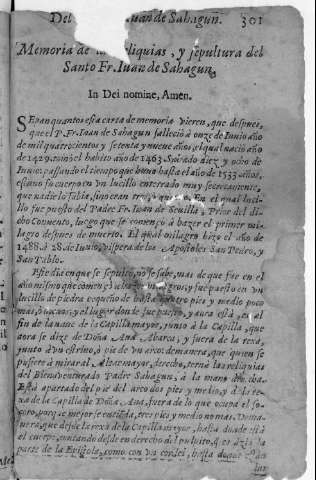 Del Iuan de Sahagun. 301
Memoria de las reliquias, y sepultura del
Santo Fr. Iuan de Sahagun.
In Dei nomine, Amen.
SEpan quantos esta carta de memoria vieren, que despues,
que el P. Fr. Ioan de Sahagun falleciò à onze de Iunio año
de mil quatrocientos y setenta y nueue años, el qual naciò año
de 1429. tomò el habito año de 1463. diez y ocho de
Iunio; passando el tiempo que huuo hasta el año de 1533. años,
estuuo su cuerpo en vn lucillo enterrado muy secretamente,
que nadie lo sabia, sino eran tres, en el qual lucillo
fue puesto del Padre Fr. Iuan de Seuilla, Prior del dicho
Conuento, luego que se començò à hazer el primer milagro
despues de muerto. El qual milagro hizo el año de
1488. à 28. de Iunio, vispera de los Apostoles San Pedro, y
San Pablo.
Este dia en que se sepultò, no se sabe, mas de que fue en el
año mismo que començò à hazer milagros, y fue puesto en vn
lucillo de piedra pequeño de hasta quatro pies y medio poco
mas, y el lugar donde fue puesto, y aora està, es al
fin de la naue de la Capilla mayor, junto à la Capilla, que
aora se dize de Doña Ana Abarca, y fuera de la rexa,
junto à vn estriuo, à pie de vn arco: demanera, que quien se
pusiere à mirar al Altar mayor, derecho, ternà las reliquias
del Bienauenturado Padre Sahagun, à la mano
Està apartado del pie del arco dos pies y medio, y de la rexa
de la Capilla de Doña Ana, fuera de lo que ocupa el
porque mejor se entienda, tres pies y medio no mas. Demanera,
que desde la rexa de la Capilla mayor, hasta donde està
el cuerpo, mirando desde en derecho del pulpito, que es àzia la
parte de la Epistola, como con vn cordel, hasta